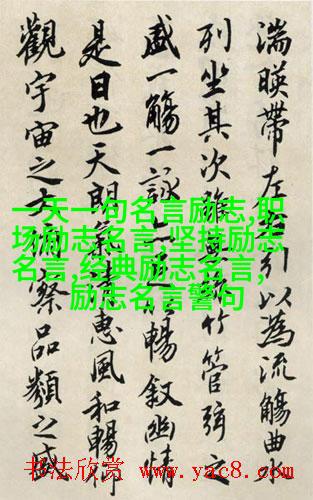 湍暎帶左右引以為流觴曲水
列坐其次雖無絲竹管弦之
盛一觴一詠亦足以暢敘幽情
是日也天朗氣清惠風和暢仰
觀宇宙之大俯察品類之盛
一天一句名言励志,职
场励志名言,坚持励志
名言,经典励志名言,
励志名言警句
书法欣赏 www.yac8.com